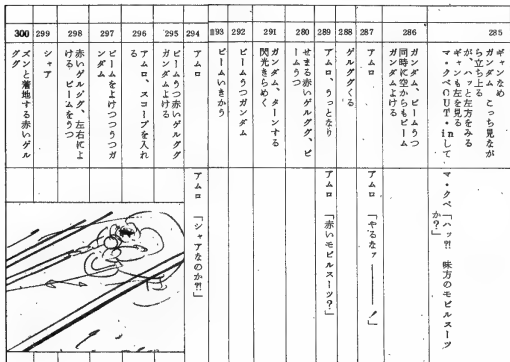 285
ギャンなめ
ガンダム こっち見なが
ら立ち上る
が、ハッと左方をみる
ギャンも左を見る
マ・クベOUT・inして
マ・クベ「ハッ?! 味方のモビルスーツ
か?」
286
ガンダム、ビームうつ
同時に空からもビーム
ガンダムよける
287
アムロ
アムロ 「やるなァ――――!」
288
ゲルググくる
289
アムロ、うっとなり
アムロ 「赤いモビルスーツ?」
280
せまる赤いゲルググ、ビ
ームうつ
291
ガンダム、ターンする
閃光きらめく
292
ビームうつガンダム
1193
ビームいきかう
294
アムロ
アムロ 「シャアなのか?!」
295
ビームうつ赤いゲルググ
ガンダムよける
296
アムロ、スコープを入れ
る
297
ビームをよけつつうつガ
ンダム
298
赤いゲルググ、左右によ
ける ビームをうつ
299
シャア
300
ズンと着地する赤いゲル
ググ